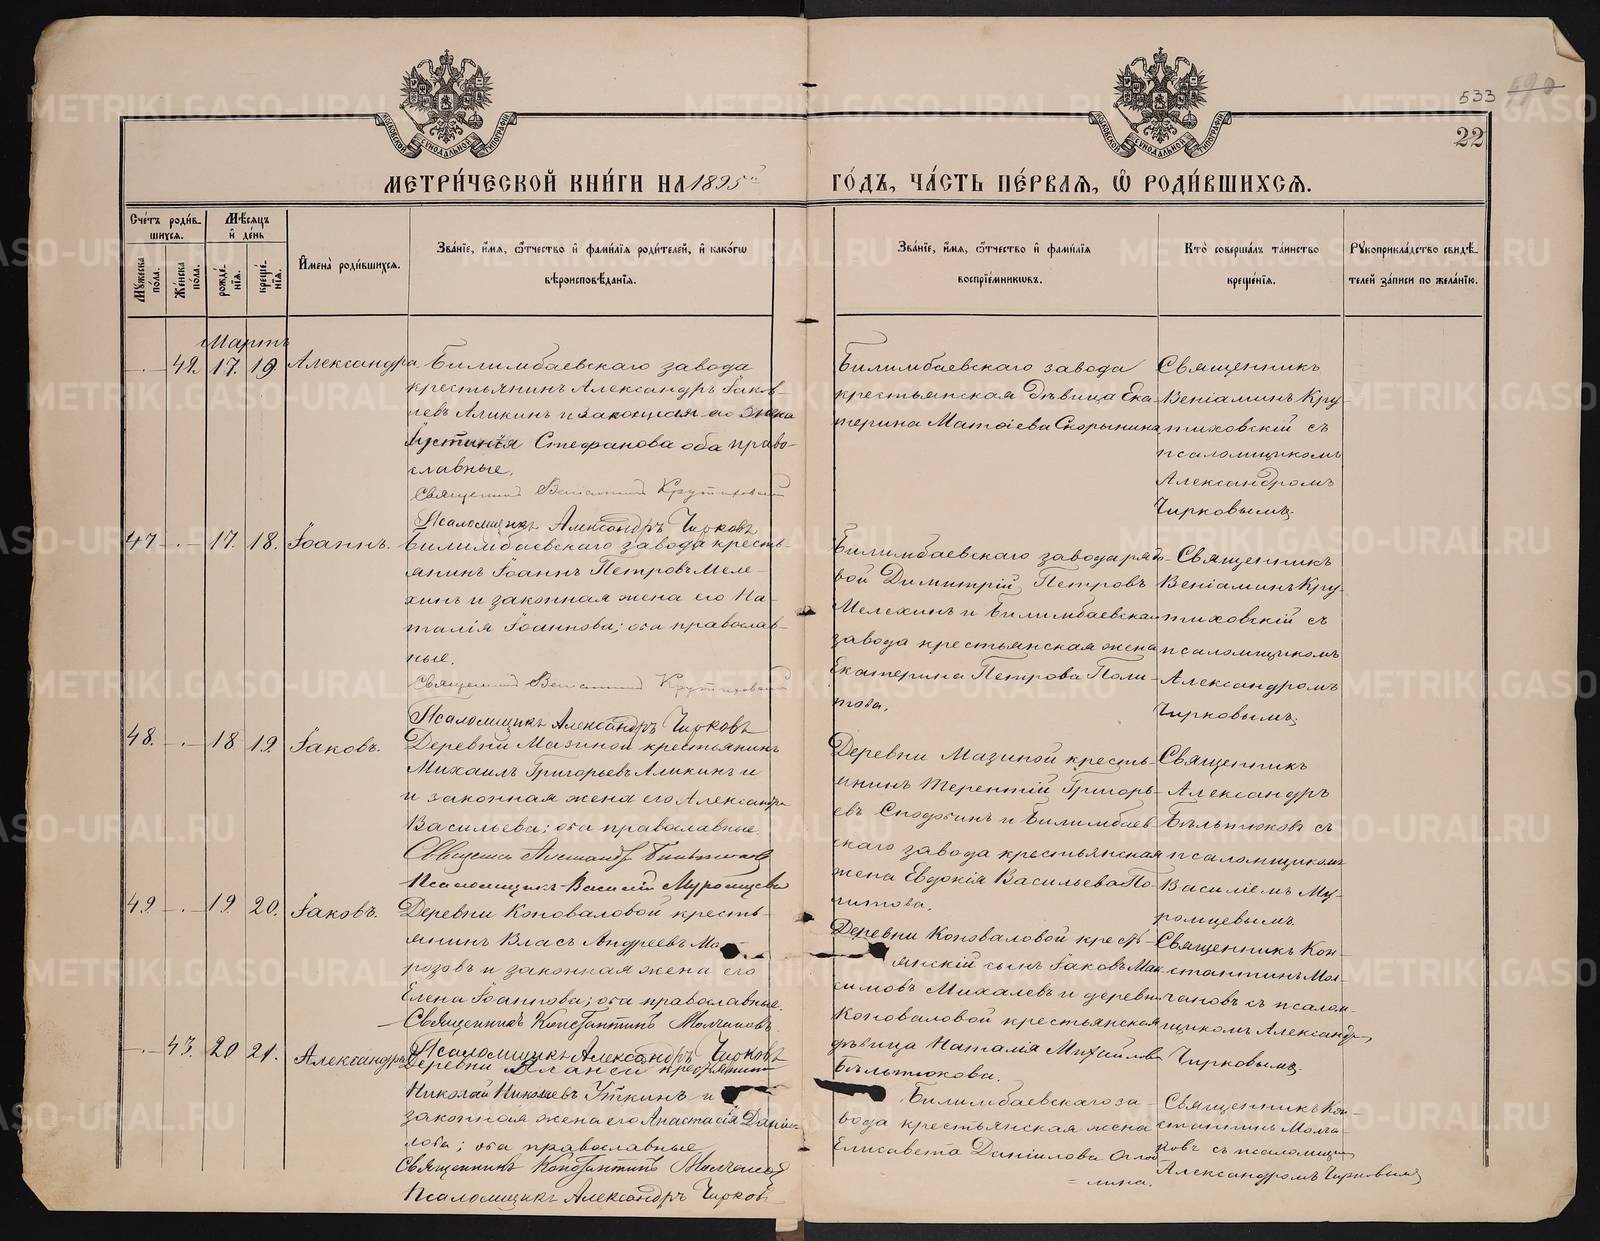 533
22
МЕТРИ́ЧЕСКОЙ КНИ́ГИ НА 1895й ГО́ДЪ, ЧА́СТЬ ПЕ́РВАЯ, Ѡ҆ РОДИ́ВШИХСЯ.
Сче́тъ роди́вшихся.
Мѣ́сяцъ и҆ де́нь
Мꙋжеска по́ла.
Же́нска по́ла.
рожде́нїя.
креще́нїя.
И҆мена̀ роди́вшихся.
Зва́нїе, и҆́мя, ѻ҆́тчество и҆ фами́лїя роди́телей, и҆ како́гѡ
вѣроисповѣ́данїя.
Зва́нїе, и҆́мя, ѻ҆́тчество и҆ фами́лїя
воспрїе́мникѡвъ.
Кто̀ соверша́лъ та́инство
креще́нїя.
Рꙋкоприкла́дство свидѣ́-
телей за́писи по жела́нїю.
Мартъ
42. 17. 19. Александра
Билимбаевскаго завода
крестьянинъ Александръ Іаков-
левъ Аликинъ и законная его жена
Іустинія Стефанова оба право-
славные.
Священникъ Веніаминъ Крутиховскій
Псаломщикъ Александръ Чирковъ
Билимбаевскаго завода
крестьянская дѣвица Ека-
терина Матѳіева Скорынина
Священникъ
Веніаминъ Кру-
тиховскій съ
псаломщикомъ
Александромъ
Чирковымъ.
47. 17. 18. Іоаннъ.
Билимбаевскаго завода кресть-
янинъ Іоаннъ Петровъ Меле-
хинъ и законная жена его На-
талія Іоаннова; оба православ-
ные.
Священникъ Веніаминъ Крутиховскій
Псаломщикъ Александръ Чирковъ
Билимбаевскаго завода рядо-
вой Димитрій Петровъ
Мелехинъ и Билимбаевскаго
завода крестьянская жена
Екатерина Петрова Поли-
това.
Священникъ
Веніаминъ Кру-
тиховскій съ
псаломщикомъ
Александромъ
Чирковымъ.
48. 18 19. Іаковъ.
Деревни Мазиной крестьянинъ
Михаилъ Григорьевъ Аликинъ и
и законная жена его Александра
Васильева; оба православные.
Священникъ Александръ Бѣльтюковъ
Псаломщикъ Василій Муромцевъ
Деревни Мазиной кресть-
янинъ Терентій Григорь-
евъ и Билимбаев-
скаго завода крестьянская
жена Евдокія Васильева По-
литова.
Священникъ
Александръ
Бѣльтюковъ съ
псаломщикомъ
Василіемъ Му-
ромцевымъ.
49. 19. 20. Іаковъ.
Деревни Коноваловой кресть-
янинъ Власъ Андреевъ Мо-
розовъ и законная жена его
Елена Іоаннова; оба православные.
Священникъ Константинъ Молчановъ
Псаломщикъ Александръ Чирковъ
Деревни Коноваловой кресть-
янскій сынъ Іаковъ Мак-
симовъ Михалевъ и деревни
Коноваловой крестьянская
дѣвица Наталія Михайлова
Бѣльтюкова.
Священникъ Кон-
стантинъ Мол-
чановъ съ псалом-
щикомъ Александр.
Чирковымъ.
43. 20 21. Александра
Деревни крестьянинъ
Николай Николаевъ Уткинъ и
законная жена его Анастасія Даніи-
лова; оба православные
Священникъ Константинъ Молчановъ
Псаломщикъ Александръ Чирковъ
Билимбаевскаго за-
вода крестьянская жена
Елисавета Даніилова Огло-
блина.
Священникъ Кон-
стантинъ Молча-
новъ съ псаломщик.
Александромъ Чирковымъ
METRIKI.GASO-URAL.RU